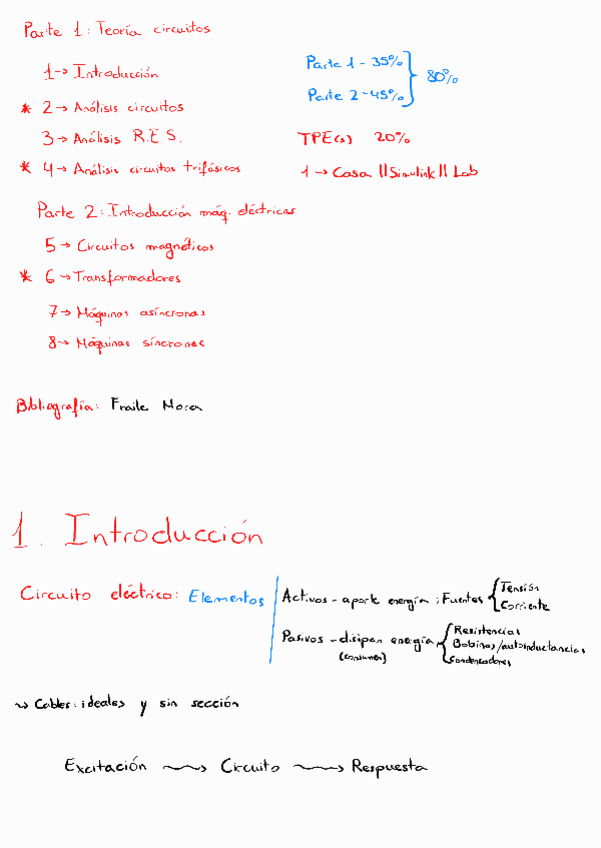 Parte 1: Teoría circuitos
1 → Introducción
* 2 → Análisis circuitos
3 → Análisis R.E.S.
* 4 → Análisis circuitos trifásicos
Parte 1 - 35%
Parte 2 - 45%
80%
TPE(s) 20%
1 → Casa || Simulink || Lab
Parte 2: Introducción máq. eléctricas
5 → Circuitos magnéticos
* 6 → Transformadores
7 → Máquinas asíncronas
8 → Máquinas síncronas
Bibliografía: Fraile Mora
1. Introducción
Circuito eléctrico: Elementos
Activos - aportan energía: Fuentes { Tensión
Corriente
Pasivos - disipan energía { Resistencias
(consumen)
Bobinas/autoinductancias
Condensadores
~> Cables: ideales y sin sección
Excitación ~> Circuito ~> Respuesta